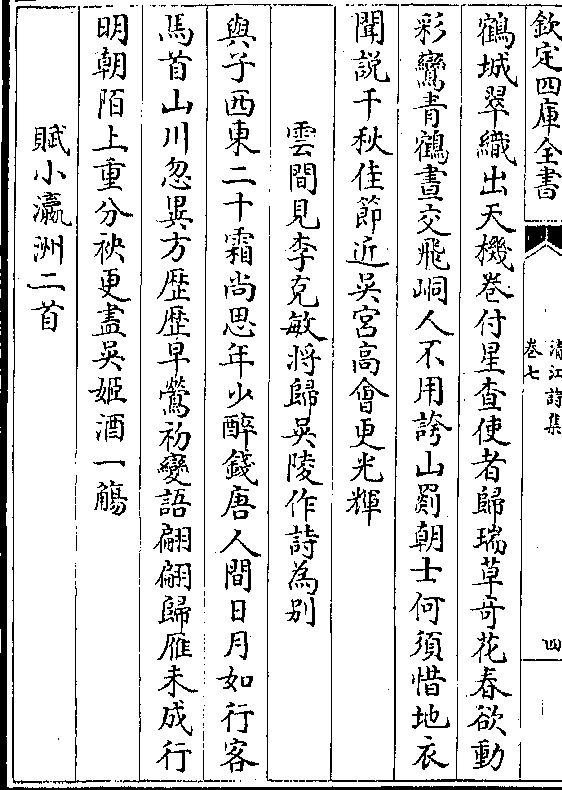 欽定四庫全書
清江詩集
卷七
四
鶴城翠織出天機卷付星查使者歸瑞草竒花春欲動
彩鸞青鶴晝交飛峒人不用誇山罽朝士何須惜地衣
聞説千秋佳節近吳宮高㑹更光輝
雲間見李克敏將歸吳陵作詩為别
與子西東二十霜尚思年少醉錢唐人間日月如行客
馬首山川忽異方歴歴早鶯初變語翩翩歸雁未成行
明朝陌上重分袂更盡吳姬酒一觴
賦小瀛洲二首